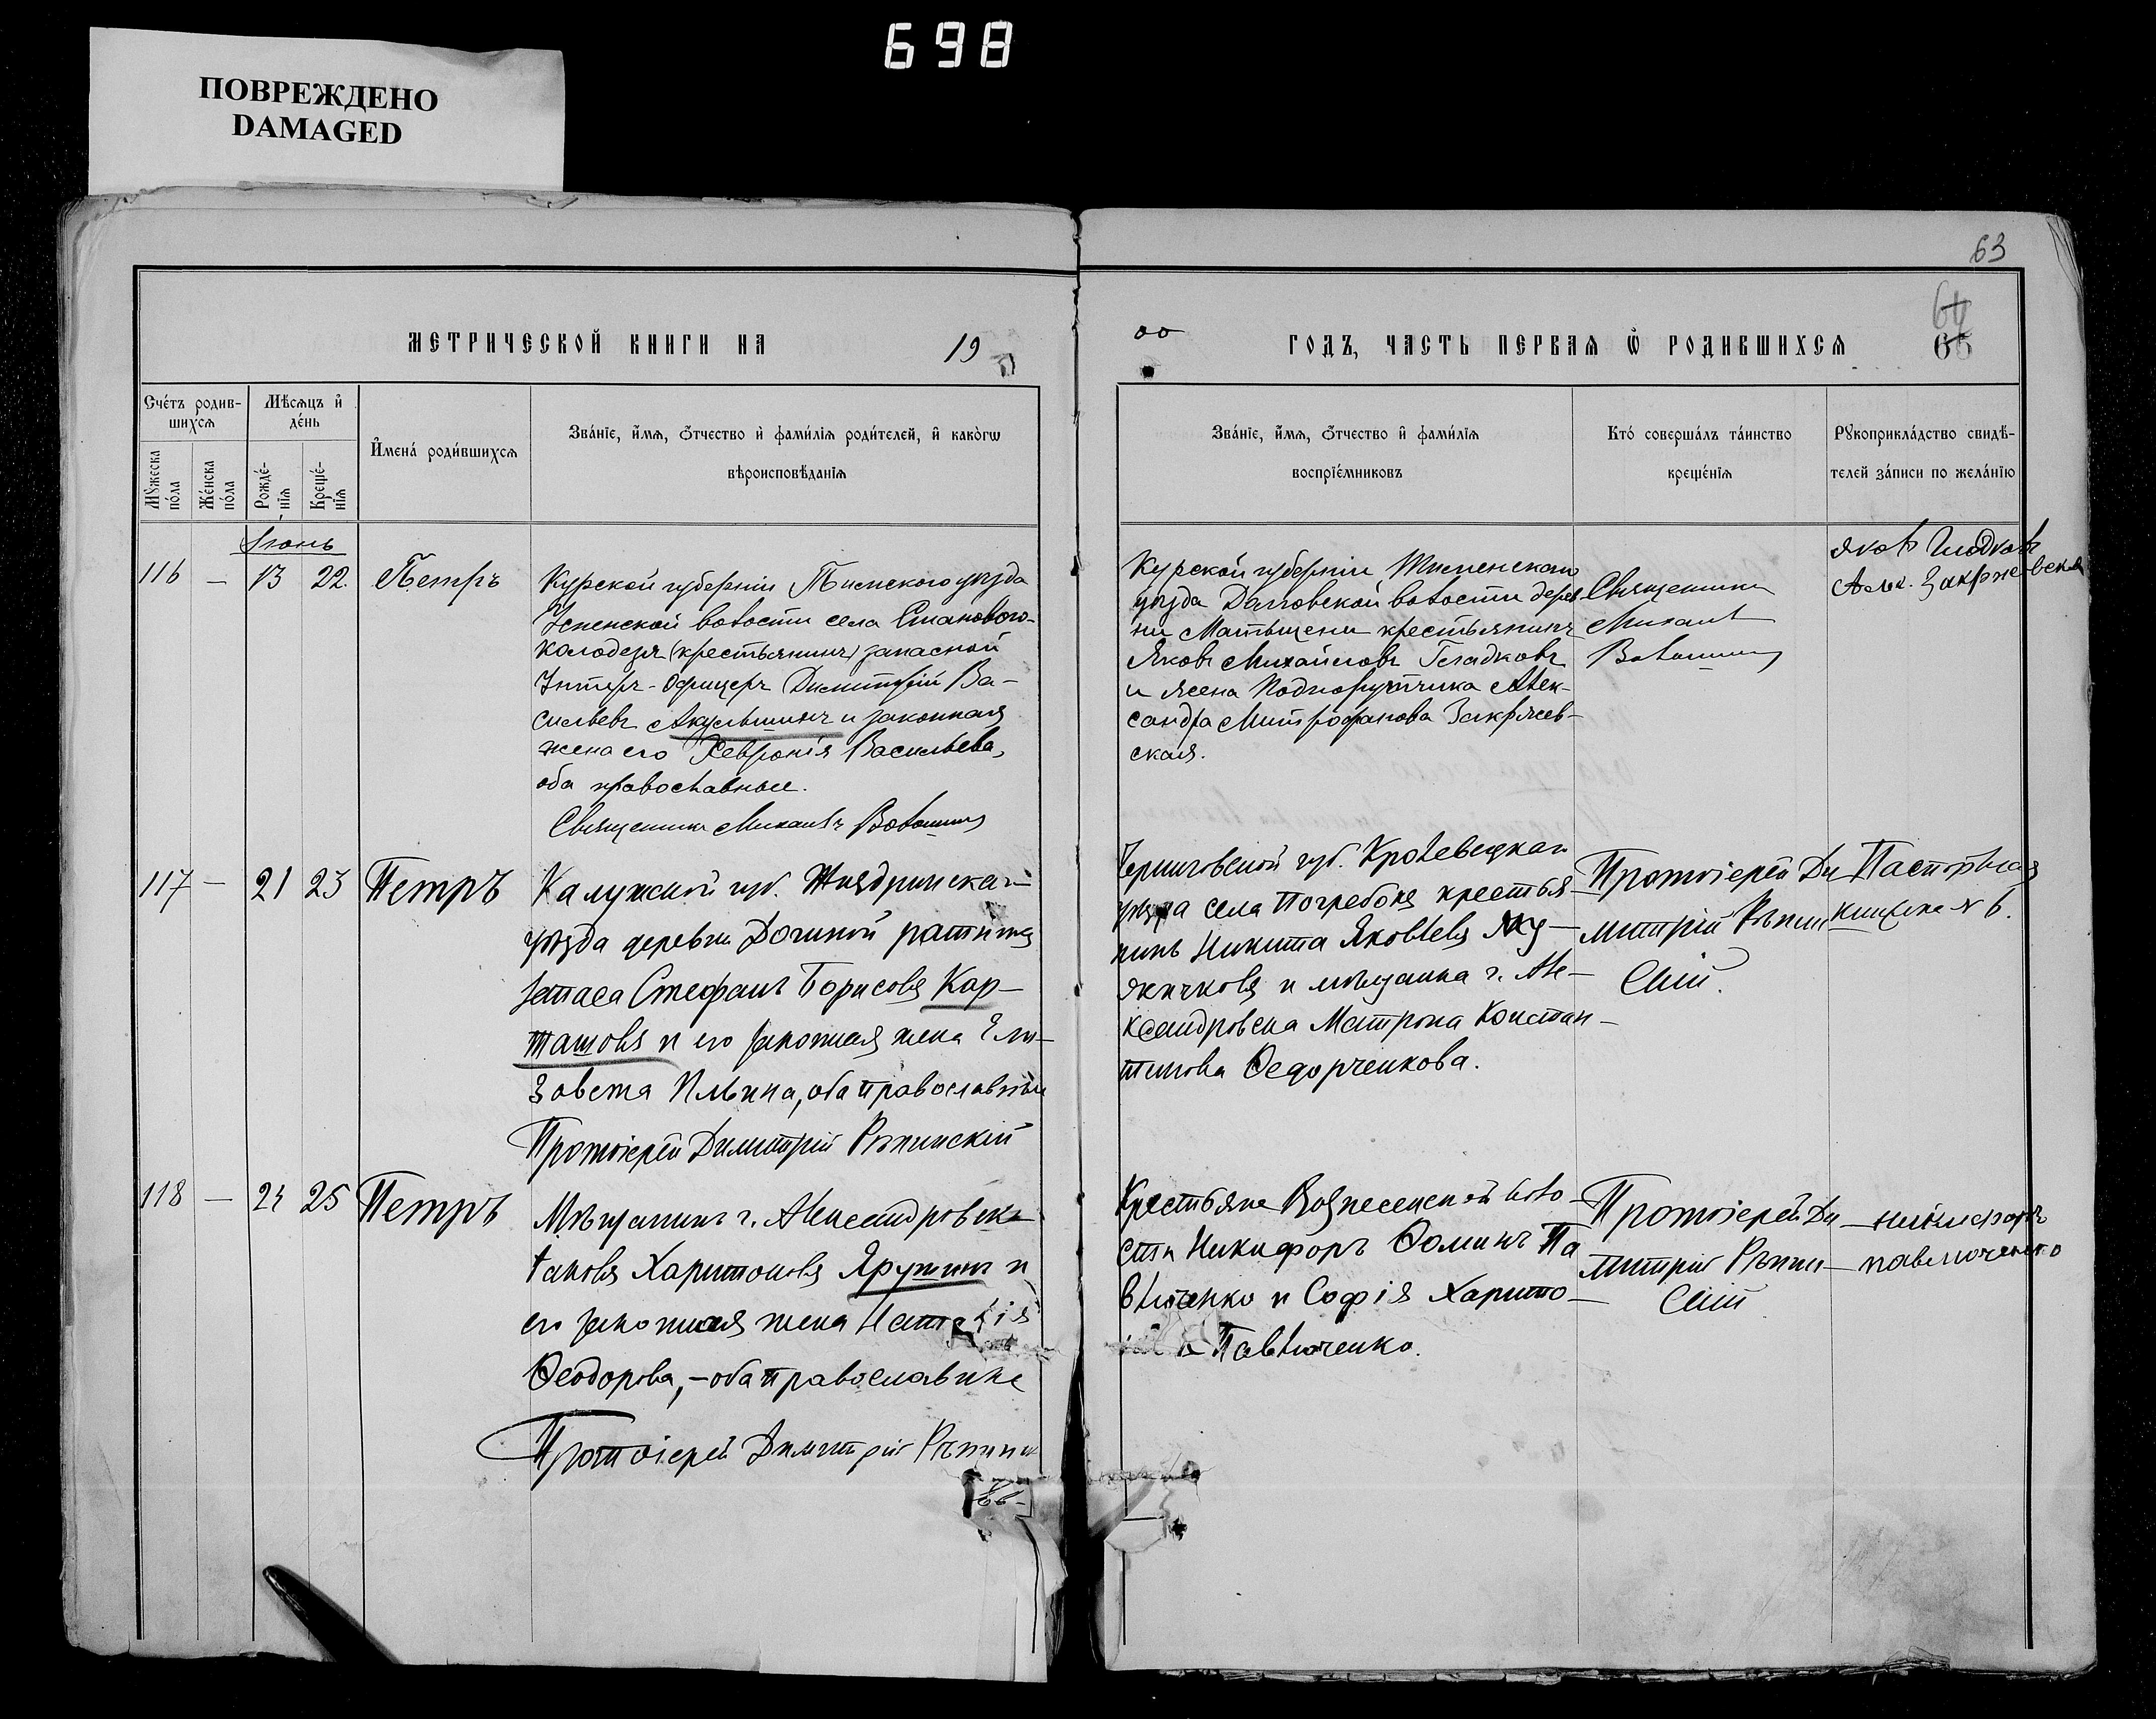 698
ПОВРЕЖДЕНО
DAMAGED
63
64
65
МЕТРИЧЕСКОЙ КНИГИ НА 19
00 ГОДЪ, ЧАСТЬ ПЕРВАЯ Ѡ РОДИВШИХСЯ
Сче́тъ родив-
шихсѧ
Мѣсѧцъ и҆
де́нь
И҆мена́ роди́вшихсѧ
Зва́нїе, и҆́мѧ, ѻ҆́тчество и҆ фами́лїѧ роди́телей, и҆ како́гѡ
вѣроисповѣ́данїѧ
Мꙋ́жеска
по́ла
Же́нска
по́ла
Рожде́-
нїѧ
Креще́-
нїѧ
Зва́нїе, и҆́мѧ, ѻ҆́тчество и҆ фами́лїѧ
воспрїе́мниковъ
Кто́ соверша́лъ та́инство
креще́нїѧ
Рꙋкоприкла́дство свидѣ́-
телей за́писи по жела́нїю
Іюнь
116 – 13 22 Петръ
Курской губерніи Тимскаго уѣзда
Успенской волости села Становаго-
Колодезя (крестьянинъ) запасной
Унтеръ-Офицеръ Димитрій Ва-
сильевъ Акульшинъ и законная
жена его Хевронія Васильева,
оба православные.
Священникъ Михаилъ Волошинъ
Курской губерніи
уѣзда волости дерев-
ни крестьянинъ
Яковъ Михайловъ Гладковъ
и жена Подпоручика Алек-
сандра Митрофанова Закржев-
ская.
Священникъ
Михаилъ
Волошинъ
Яковъ Гладковъ
Алек. Закржевская
117 – 21 23 Петръ
Калужской губ. Жиздринскаго
уѣзда деревни ратникъ
запаса Стефанъ Борисовъ Кар-
ташовъ и его законная жена Ели-
завета Ильина, оба православные
Протоіерей Димитрій Рѣпинскій
Черниговской губ. Кролевецкаго
уѣзда села Погребовъ крестья-
нинъ Никита Яковлевъ
и мѣщанка г. Але-
ксандровска Матрона Констан-
тинова Ѳедорченкова.
Протоіерей Ди-
митрій Рѣпин-
скій.
Паспортная
книжка № 6.
118 – 24 25 Петръ
Мѣщанинъ г. Александровска
Іаковъ Харитоновъ Яружинъ и
его законная жена Наталія
Ѳеодорова, – оба православные
Протоіерей Димитрій Рѣпинск
Крестьяне Вознесенской воло-
сти Никифоръ Ѳоминъ Па-
влюченко и Софія Харито-
Павлюченко.
Протоіерей Ди-
митрій Рѣпин-
скій
Никифоръ
Павлюченко